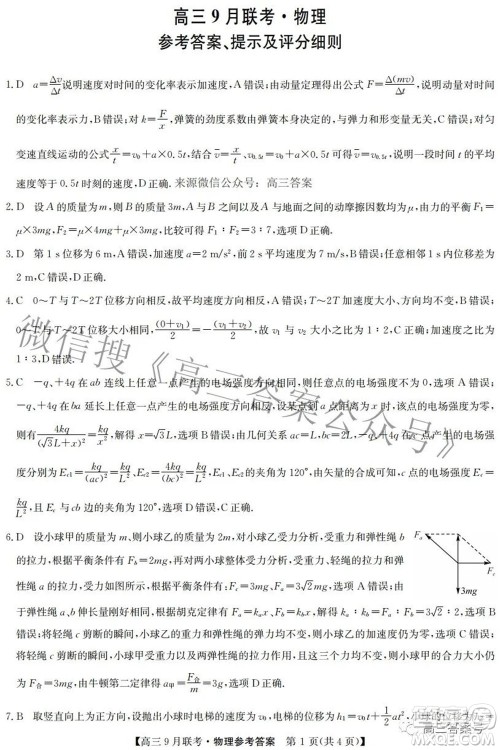 高三9月联考·物理
参考答案、提示及评分细则
1. D a=Δv/Δt说明速度对时间的变化率表示加速度, A错误;由动量定理得出公式 F=Δ(mv)/Δt, 说明动量对时间
的变化率表示力, B错误;对 k=F/x, 弹簧的劲度系数由弹簧本身决定的, 与弹力和形变量无关, C错误;对匀
变速直线运动的公式x/t=v₀+a×0.5t, v̄=x/t、v₀.₅t=v₀+a×0.5t 可得 v̄=v₀.₅t, 说明一段时间 t的平均
速度等于 0.5t 时刻的速度, D正确. 来源微信公众号:高三答案
2. D 设A的质量为m, 则B的质量3m, A与B之间以及A与地面之间的动摩擦因数均为μ, 由力的平衡F₁=
μ×3mg, F₂=μ×4mg+μ×3mg, 比较可得 F₁∶F₂=3∶7, 选项D正确.
3. D 第1 s位移为6 m, A错误;加速度a=2 m/s², 前2 s平均速度为7 m/s, B错误;任意相邻1 s内位移差为
2 m, C错误, D正确.
4. C 0~T与T~2T位移方向相反, A错误;0~T与T~2T加速度大小、方向均不变, B错误;
0~T与T~2T位移大小相同, (0+v₁)/2=(−v₁+v₂)/2, 动量的大小之比为1∶2, C正确;动能的大小之比为
1∶3, D错误.
5. C −q、+4q在ab连线上任意一点产生的电场强度方向相同, 则合场强不可能为0, 选项A错误;
−q、+4q在ba延长线上任意一点产生的电场强度方向相反,
则有4kq/(√3L+x)²=kq/x²,
度分别为Ec₁=kq/(ac)²=kq/L²、Ec₂=4kq/(bc)²=kq/L², Ec₁与Ec₂的夹角为120°, 由矢量的合成可知, c点的电场强度Ec=
kq/L², 且Ec与cb边的夹角为120°, 选项C正确、D错误.
6. D 设小球甲的质量为m, 则小球乙的质量为2m, 对小球乙受力分析, 受重力、弹性绳b
的拉力, 根据平衡条件有Fb=2mg, 再对两小球整体受力分析, 受重力、轻绳的拉力和弹
性绳a的拉力, 根据平衡条件有Fc=3mg, Fa=3√2mg, 选项A错误;由
于弹性绳a、b伸长量刚好相同, 根据胡克定律有Fa=kax、Fb=kbx, 解得ka∶kb=Fa∶Fb=3√2∶2, 选项B
错误;将轻绳c剪断的瞬间, 小球乙的重力和弹性绳b的拉力不变, 则小球乙的加速度仍为零, 选项C错误;
将轻绳c剪断的瞬间, 小球甲受重力以及两弹性绳的作用力, 且这三个力均不变, 则小球甲的合力大小为F合
=3mg, 由牛顿第二定律得a甲=F合/m=3g, 选项D正确.
Fa
Fc
3mg
7. B 取竖直向上为正方向, 小球上升的位移
【高三9月联考·物理参考答案 第1页(共4页)】
微信搜《高三答案公众号》
高三答案号